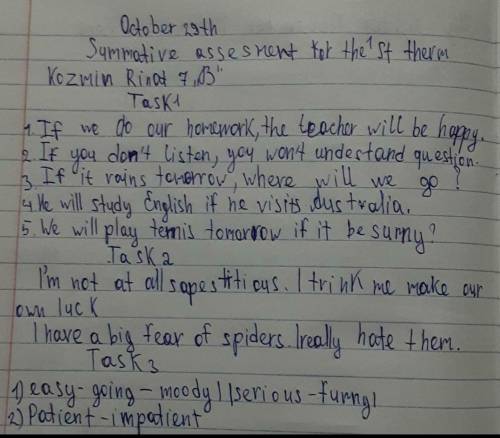 October 29th
Summative assesment for the 1st therm
Kozmin Rinat 7 „B"
Task1
1. If we do our homework, the teacher will be happy.
2. If you don't listen, you won't undestand question.
3. If it rains tomorrow, where will we go?
4. He will study English if he visits Australia.
5. We will play tennis tomorrow if it be sunny?
Task2
I'm not at all sapestitious. I think me make our
own luck
I have a big fear of spiders. I really hate them.
Task3
1) easy-going - moody | serious -
2) Patient - impatient